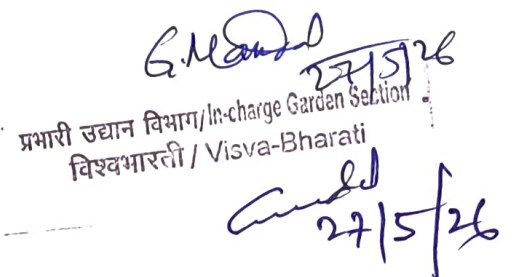 G. Mandal
27/5/26
प्रभारी उद्यान विभाग/In-charge Garden Section
विश्वभारती / Visva-Bharati
27/5/26